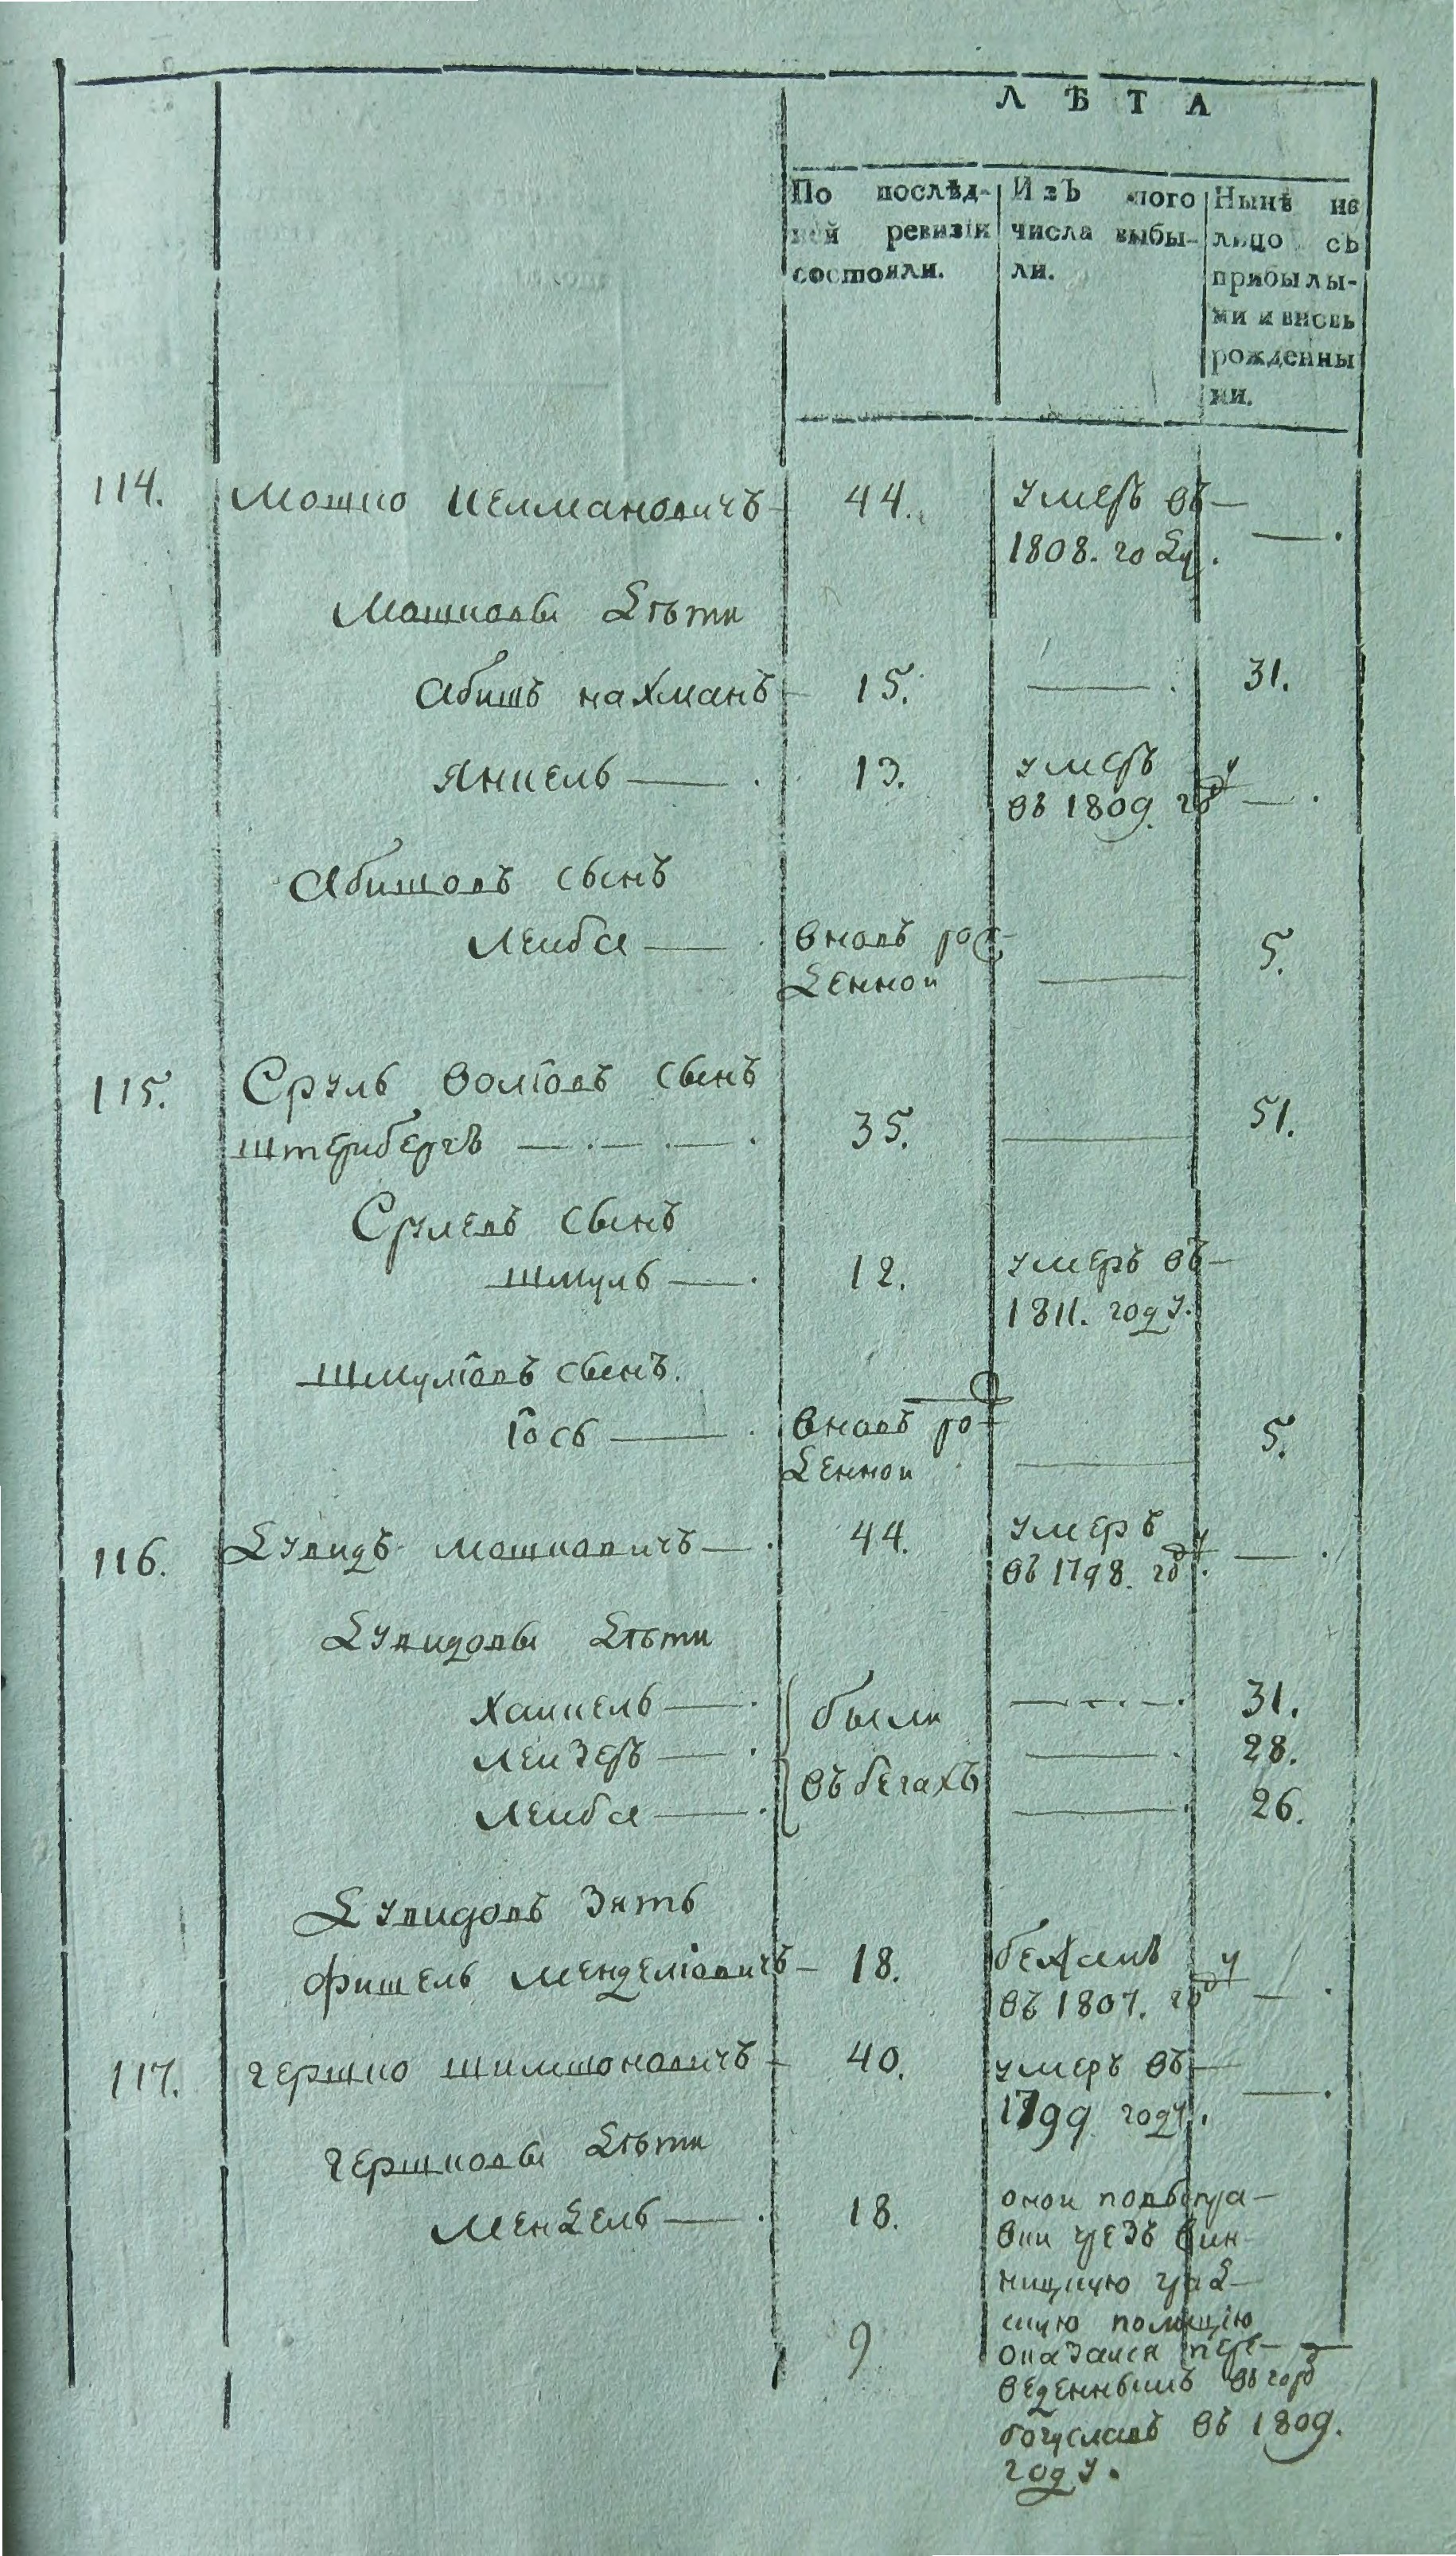 ЛѢТА
По послѣд-
ней ревизіи
состояли.
Изъ того
числа выбы-
ли.
Нынѣ на
лицо съ
прибылы-
ми и вновь
рожденны
ми.
114. Мошко Келмановичъ 44. умеръ въ
1808. году. — .
Мошковы дѣти
Абишъ нахманъ 15. — . 31.
Янкель — . 13. умеръ
въ 1809. году — .
Абишовъ сынъ
Лейба — . вновь рож
денной — 5.
115. Сруль Волковъ сынъ
штернбергъ — . — . — . 35. — 51.
Срулевъ сынъ
шмуль — . 12. умеръ въ
1811. году.
шмулiовъ сынъ.
Iось — . вновь рож
денной — 5.
116. Дувидъ Мошковичъ — . 44. умеръ
въ 1798. году. — .
Дувидовы дѣти
Хацкель — . были — . — . — . 31.
Лейзеръ — . — . 28.
въ бегахъ
Лейба — . — . 26.
Дувидовъ зять
фишель Менделiовичъ — 18. бежалъ
въ 1807. году — .
117. гершко шимшоновичъ 40. умеръ въ
1799 году. — .
гершковы дѣти
Мендель — . 18. оной по выпра
вки чрезъ вин
ницкую град
скую полицiю
9 оказался пере
веденнымъ въ горд
богуславъ въ 1809.
году.